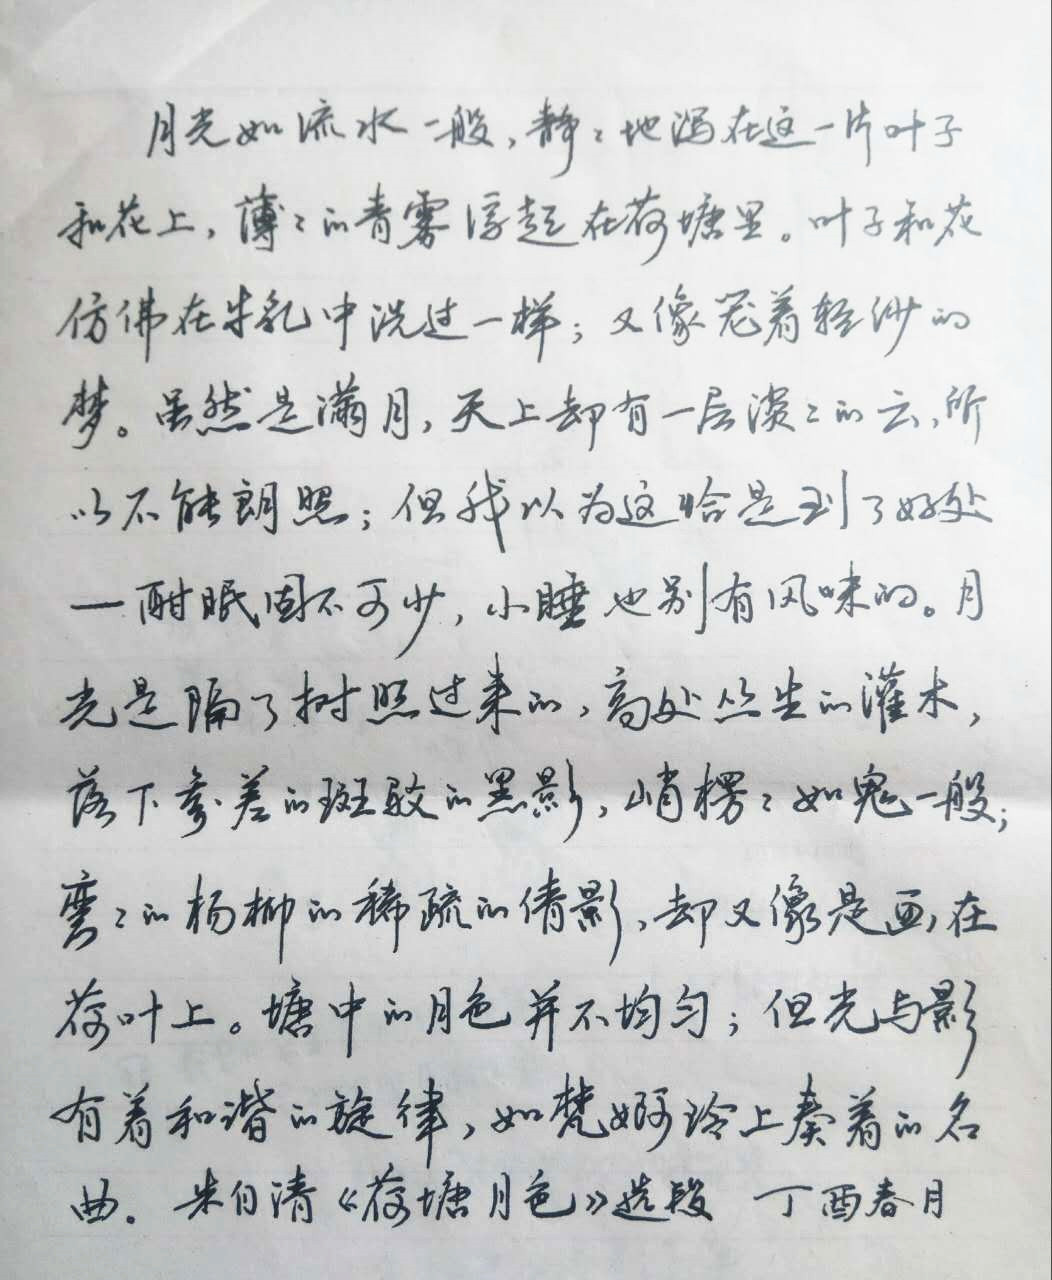 月光如流水一般,静々地泻在这一片叶子
和花上,薄々的青雾浮起在荷塘里。叶子和花
仿佛在牛乳中洗过一样;又像笼着轻纱的
梦。虽然是满月,天上却有一层淡々的云,所
以不能朗照;但我以为这恰是到了好处
一酣眠固不可少,小睡也别有风味的。月
光是隔了树照过来的,高处丛生的灌木,
落下参差的斑驳的黑影,峭楞々如鬼一般;
弯々的杨柳的稀疏的倩影,却又像是画在
荷叶上。塘中的月色并不均匀;但光与影
有着和谐的旋律,如梵婀玲上奏着的名
曲。朱自清《荷塘月色》选段 丁酉春月